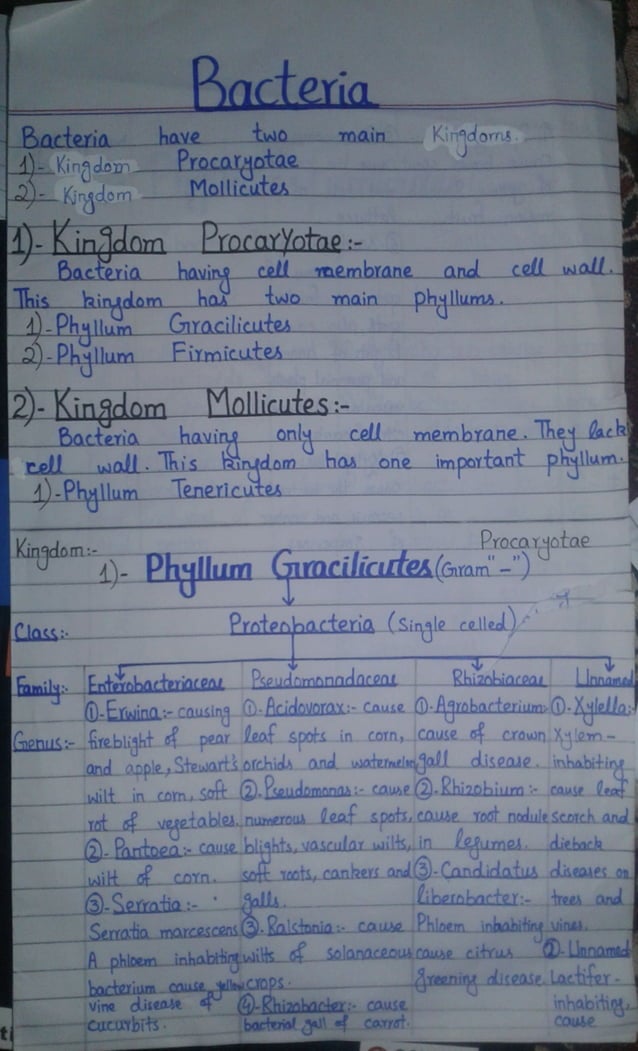 Bacteria
Bacteria have two main Kingdoms.
1)- Kingdom Procaryotae
2)- Kingdom Mollicutes
1)- Kingdom Procaryotae:-
Bacteria having cell membrane and cell wall.
This kingdom has two main phyllums.
1)-Phyllum Gracilicutes
2)-Phyllum Firmicutes
2)- Kingdom Mollicutes:-
Bacteria having only cell membrane. They lack
cell wall. This kingdom has one important phyllum.
1)-Phyllum Tenericutes
Kingdom:- Procaryotae
1)- Phyllum Gracilicutes (Gram "-")
Class:- Proteobacteria (Single celled)
Family:-
Genus:-
Enterobacteriaceae
①-Erwina:- causing
fireblight of pear
and apple, Stewart's
wilt in corn, soft
rot of vegetables.
②-Pantoea:- cause
wilt of corn.
③-Serratia:-
Serratia marcescens
A phloem inhabiting
bacterium cause yellow
vine disease of
cucurbits.
Pseudomonadaceae
①-Acidovorax:- cause
leaf spots in corn,
orchids and watermelon
②-Pseudomonas:- cause
numerous leaf spots,
blights, vascular wilts,
soft roots, cankers and
galls.
③-Ralstonia:- cause
wilts of solanaceous
crops.
④-Rhizobacter:- cause
bacterial gall of carrot.
Rhizobiaceae
①-Agrobacterium:-
cause of crown
gall disease.
②-Rhizobium:-
cause root nodule
in legumes.
③-Candidatus
liberobacter:-
Phloem inhabiting
cause citrus
greening disease.
Unnamed
①-Xylella:-
Xylem-
inhabiting
cause leaf
scorch and
dieback
diseases on
trees and
vines.
②-Unnamed
Lactifer-
inhabiting,
cause